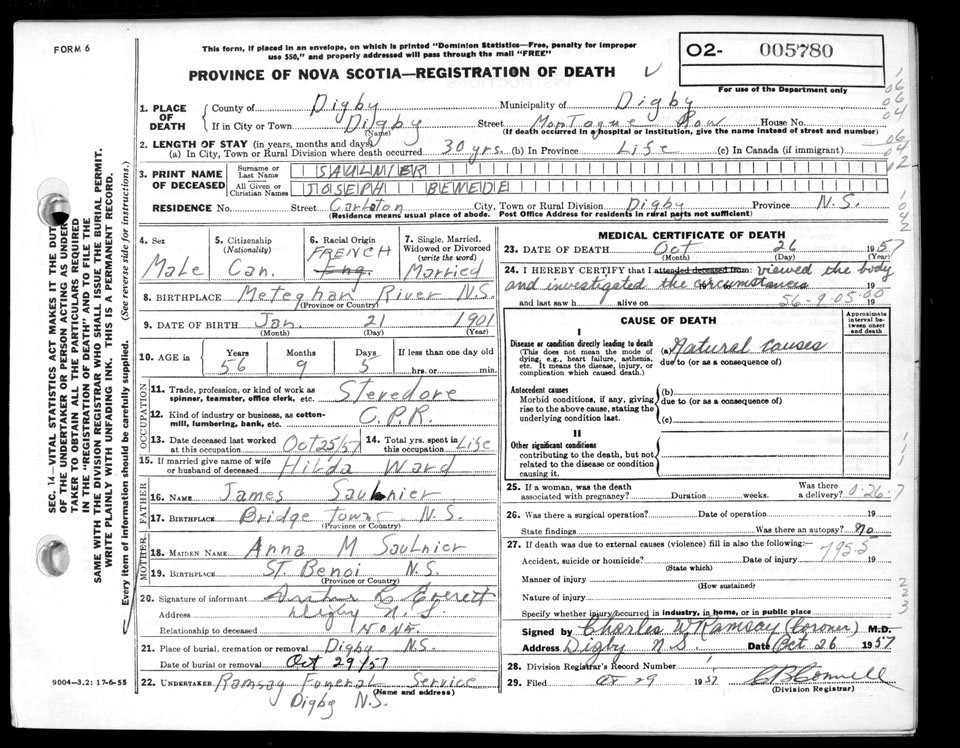 FORM 6
This form, if placed in an envelope, on which is printed "Dominion Statistics—Free, penalty for improper
use $50," and properly addressed will pass through the mail "FREE"
PROVINCE OF NOVA SCOTIA—REGISTRATION OF DEATH
O2- 005780
For use of the Department only
SEC. 14—VITAL STATISTICS ACT MAKES IT THE DUTY
OF THE UNDERTAKER OR PERSON ACTING AS UNDER-
TAKER TO OBTAIN ALL THE PARTICULARS REQUIRED
IN THE "REGISTRATION OF DEATH" AND TO FILE THE
SAME WITH THE DIVISION REGISTRAR WHO SHALL ISSUE THE BURIAL PERMIT.
WRITE PLAINLY WITH UNFADING INK. THIS IS A PERMANENT RECORD.
Every item of information should be carefully supplied. (See reverse side for instructions.)
1. PLACE OF DEATH
County of Digby Municipality of Digby
If in City or Town Digby Street Montague Row House No.
(Name) (If death occurred in a hospital or institution, give the name instead of street and number)
2. LENGTH OF STAY (in years, months and days)
(a) In City, Town or Rural Division where death occurred 30 yrs. (b) In Province Life (c) In Canada (if immigrant)
3. PRINT NAME OF DECEASED
Surname or Last Name SAULNIER
All Given or Christian Names JOSEPH BEMEDE
RESIDENCE No. Street Carleton City, Town or Rural Division Digby Province N.S.
(Residence means usual place of abode. Post Office Address for residents in rural parts not sufficient)
4. Sex Male
5. Citizenship (Nationality) Can.
6. Racial Origin FRENCH Eng.
7. Single, Married, Widowed or Divorced (write the word) Married
8. BIRTHPLACE Meteghan River N.S.
(Province or Country)
9. DATE OF BIRTH Jan. 21 1901
(Month) (Day) (Year)
10. AGE in Years 56 Months 9 Days 5 If less than one day old hrs. or min.
OCCUPATION
11. Trade, profession, or kind of work as spinner, teamster, office clerk, etc. Stevedore
12. Kind of industry or business, as cotton-mill, lumbering, bank, etc. C.P.R.
13. Date deceased last worked at this occupation Oct 25/57 14. Total yrs. spent in this occupation Life
15. If married give name of wife or husband of deceased Hilda Ward
FATHER
16. NAME James Saulnier
17. BIRTHPLACE Bridge Town N.S.
(Province or Country)
MOTHER
18. MAIDEN NAME Anna M Saulnier
19. BIRTHPLACE ST. Benoi N.S.
(Province or Country)
20. Signature of informant Everett
Address Digby N.S.
Relationship to deceased NONE
21. Place of burial, cremation or removal Digby N.S.
Date of burial or removal Oct 29/57
22. UNDERTAKER Ramsay Funeral Service
(Name and address)
Digby N.S.
9004—3.2: 17-6-55
MEDICAL CERTIFICATE OF DEATH
23. DATE OF DEATH Oct 26 1957
(Month) (Day) (Year)
24. I HEREBY CERTIFY that I attended deceased from: viewed the body
and investigated the circumstances 19
and last saw h alive on 56-9-05-00 19
CAUSE OF DEATH
Approximate interval between onset and death
I
Disease or condition directly leading to death
(This does not mean the mode of dying, e.g., heart failure, asthenia, etc. It means the disease, injury, or complication which caused death.)
(a) Natural causes
due to (or as a consequence of)
Antecedent causes
Morbid conditions, if any, giving rise to the above cause, stating the underlying condition last.
(b)
due to (or as a consequence of)
(c)
II
Other significant conditions
contributing to the death, but not related to the disease or condition causing it.
25. If a woman, was the death associated with pregnancy? Duration weeks. Was there a delivery? 0-26-7
26. Was there a surgical operation? Date of operation 19
State findings Was there an autopsy? No
27. If death was due to external causes (violence) fill in also the following:—
795.5
Accident, suicide or homicide? Date of injury 19
(State which)
Manner of injury
(How sustained)
Nature of injury
Specify whether injury occurred in industry, in home, or in public place
Signed by Charles W Ramsay (Coroner) M.D.
Address Digby N.S. Date Oct 26 1957
28. Division Registrar's Record Number
29. Filed Oct 29 1957
(Division Registrar)